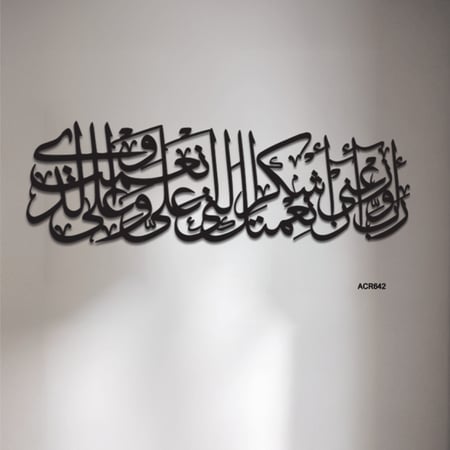 رب أوزعني أن أشكر نعمتك التي أنعمت علي وعلى والدي
ACR642